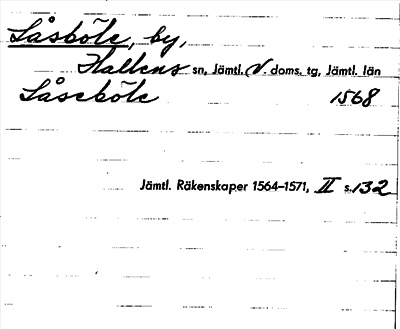 Såsböle, by,
Hallens sn, Jämtl. V. doms. tg, Jämtl. län
Såseböle 1568
Jämtl. Räkenskaper 1564–1571, II s. 132